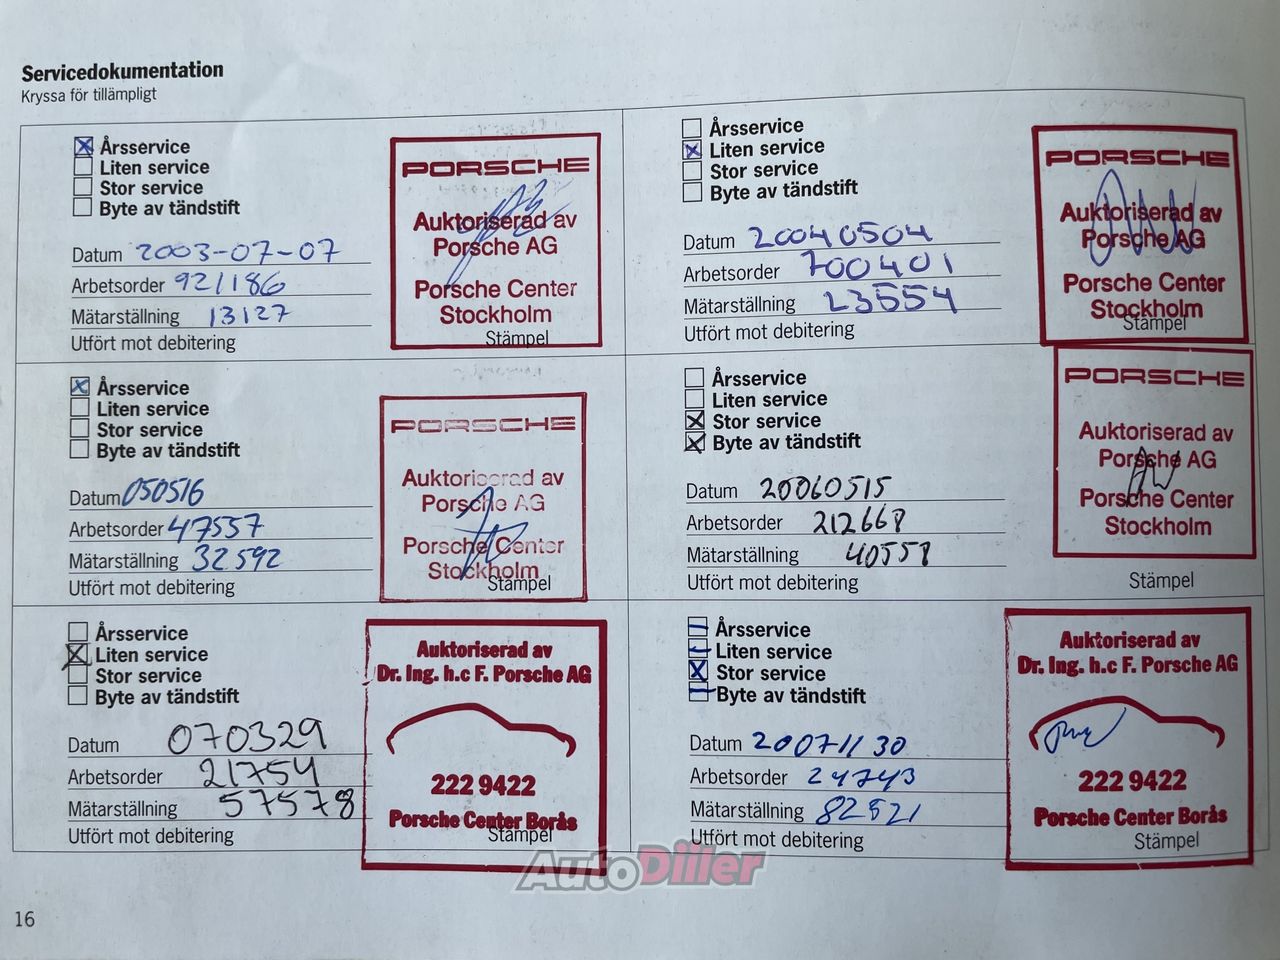 Servicedokumentation
Kryssa för tillämpligt
Årsservice
Liten service
Stor service
Byte av tändstift
Datum 2003-07-07
Arbetsorder 921186
Mätarställning 13127
Utfört mot debitering
PORSCHE
Auktoriserad av
Porsche AG
Porsche Center
Stockholm
Stämpel
Årsservice
Liten service
Stor service
Byte av tändstift
Datum 20040504
Arbetsorder 700401
Mätarställning 23554
Utfört mot debitering
PORSCHE
Auktoriserad av
Porsche AG
Porsche Center
Stockholm
Stämpel
Årsservice
Liten service
Stor service
Byte av tändstift
Datum 050516
Arbetsorder 47537
Mätarställning 32592
Utfört mot debitering
PORSCHE
Auktoriserad av
Porsche AG
Porsche Center
Stockholm
Stämpel
Årsservice
Liten service
Stor service
Byte av tändstift
Datum 20060515
Arbetsorder 212668
Mätarställning 40558
Utfört mot debitering
PORSCHE
Auktoriserad av
Porsche AG
Porsche Center
Stockholm
Stämpel
Årsservice
Liten service
Stor service
Byte av tändstift
Datum 070329
Arbetsorder 21754
Mätarställning 57578
Utfört mot debitering
Auktoriserad av
Dr. Ing. h.c F. Porsche AG
222 9422
Porsche Center Borås
Stämpel
Årsservice
Liten service
Stor service
Byte av tändstift
Datum 20071130
Arbetsorder 24743
Mätarställning 82821
Utfört mot debitering
Auktoriserad av
Dr. Ing. h.c F. Porsche AG
222 9422
Porsche Center Borås
Stämpel
AutoDiller
16